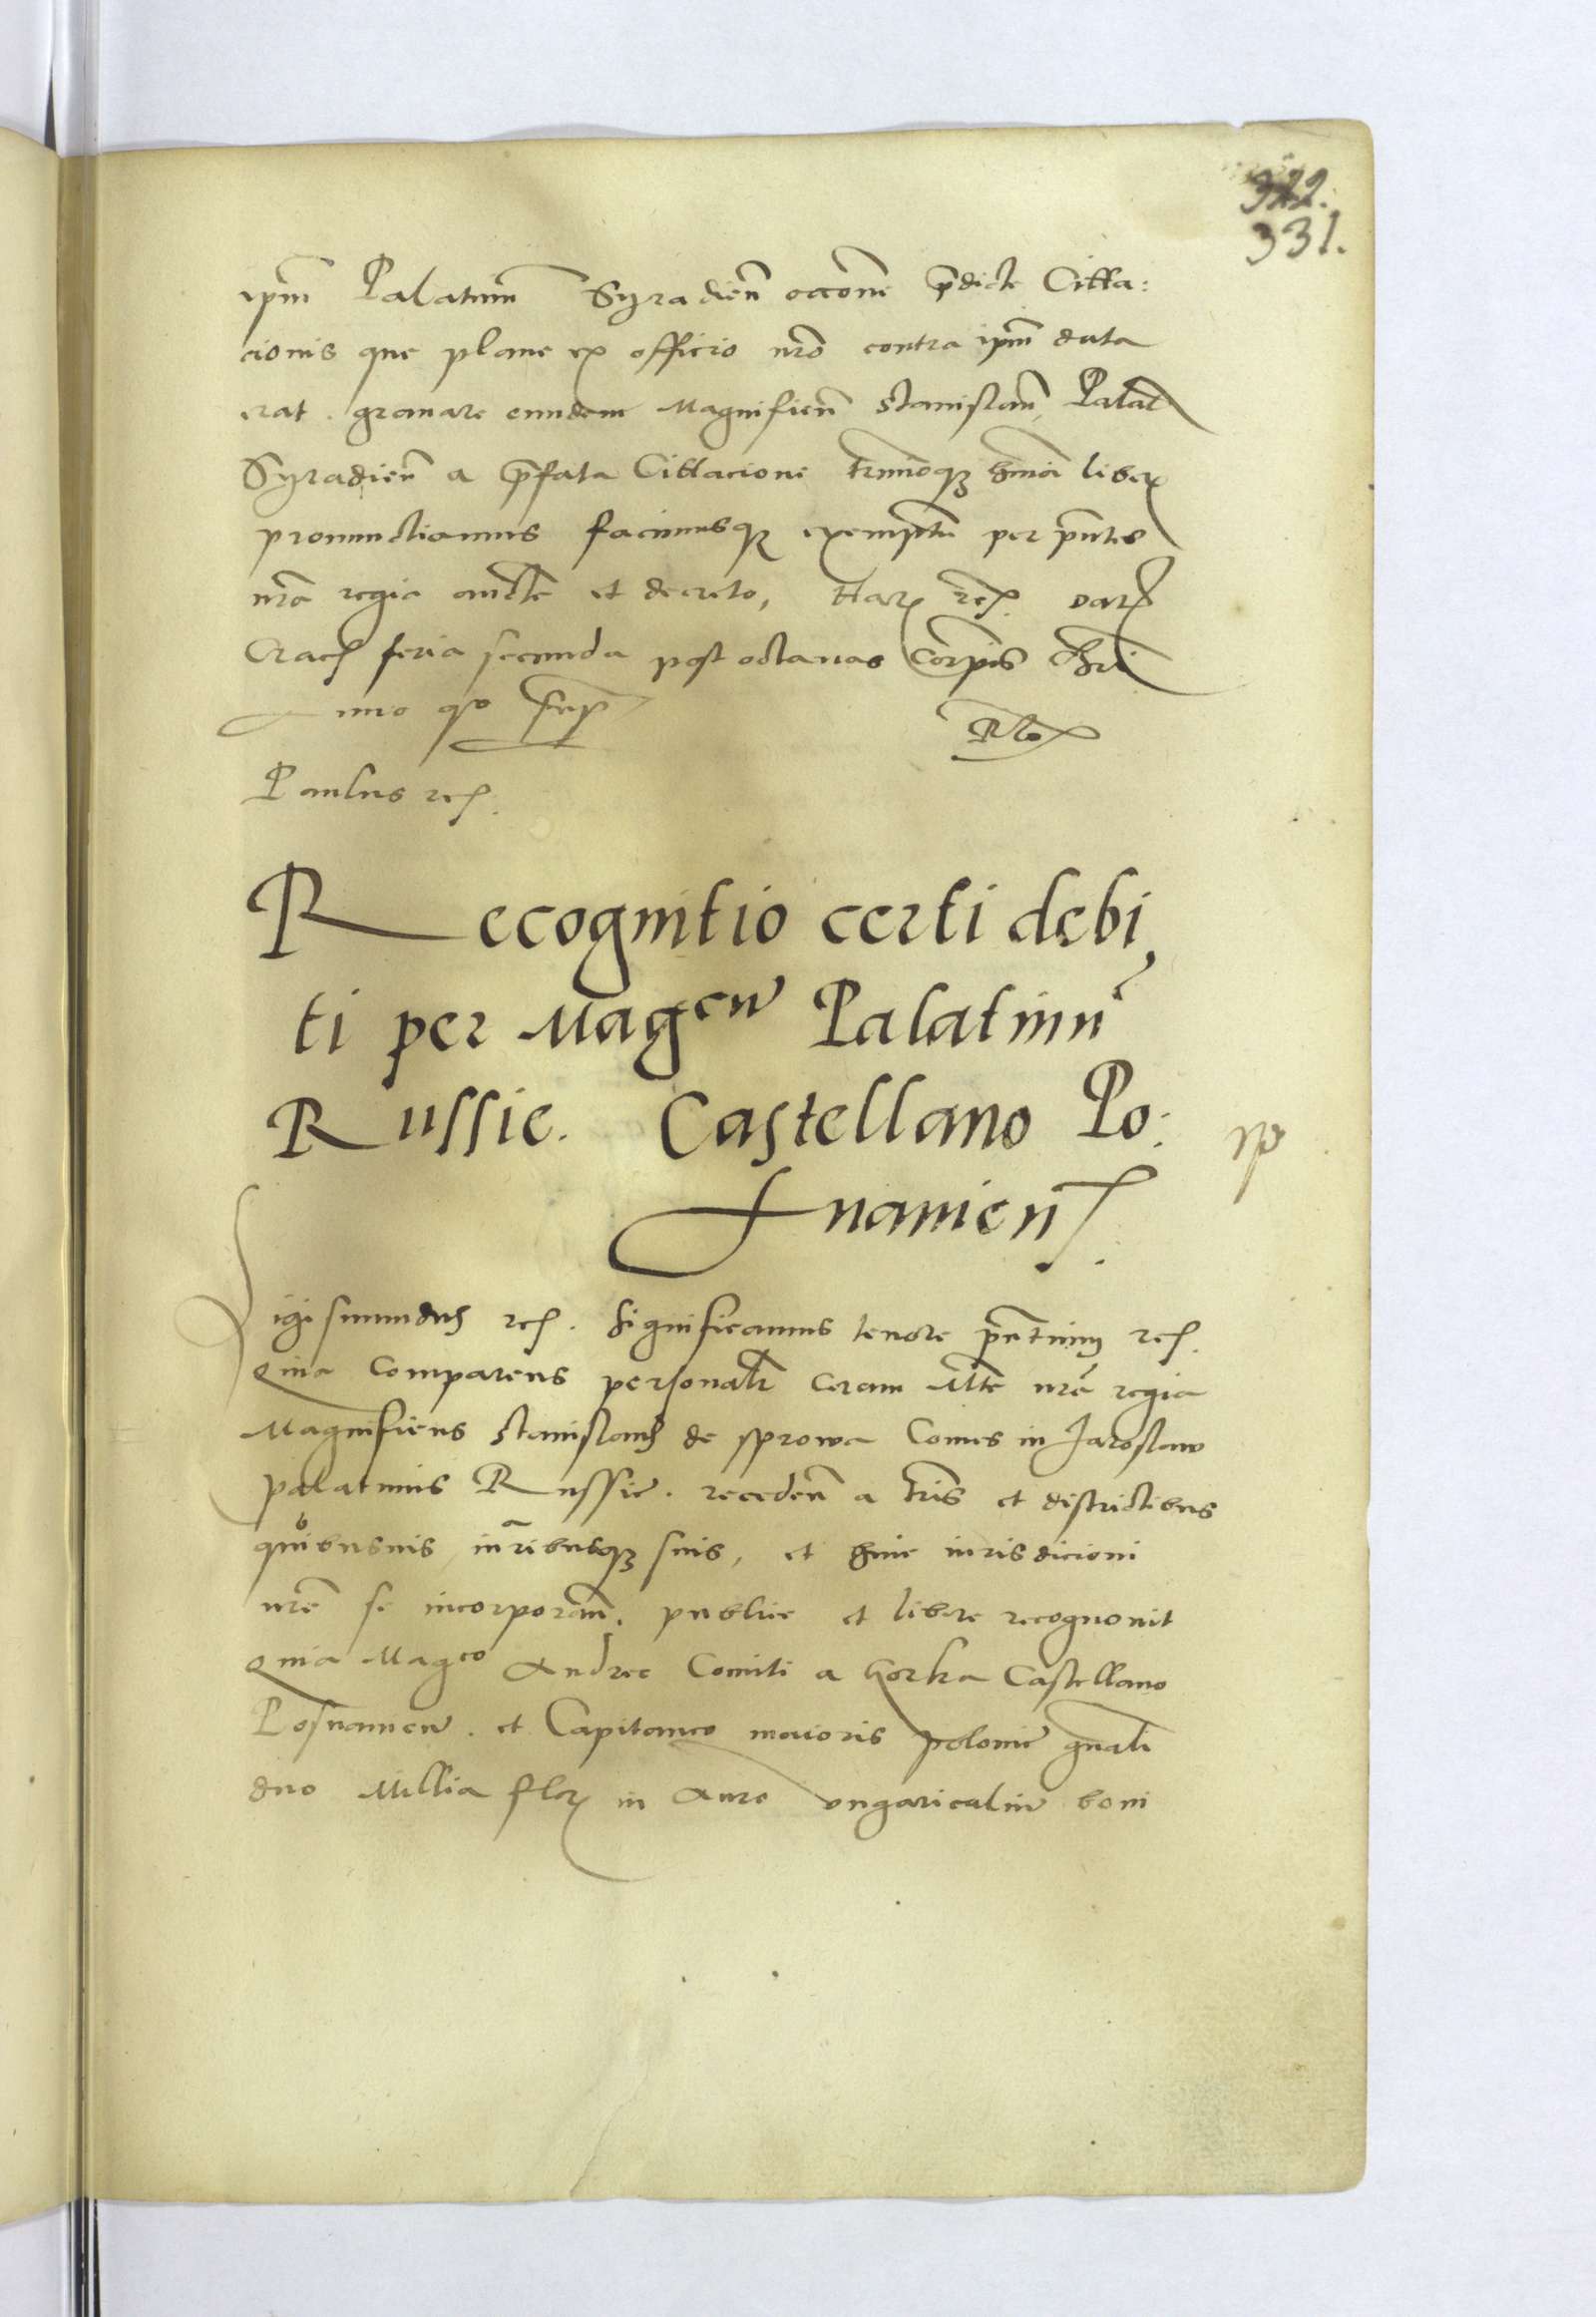 322.
331.
ipm̄ Palatinū Syradieñ occōne p̄dicte Citta:
cionis que plane ex officio nr̄o contra ipm̄ data
erat. grauare eundem Magnificū Stanislaū Palat
Syradieñ a p̄fata Cittacione t̄minoqȝ hmōi liber
pronunctiamus facimusqȝ exemptū per p̄ntes
nr̄a regia aucte et decreto, Harȝ rcȝ Datȝ
Cracȝ feria secunda post octauas Corp̄is Chri
Anno quo sup̄
Paulus rcȝ.
Recognitio certi debi
ti per Magcū Palatinū
Russie. Castellano Po:
snanienȝ.
Sigismundus rcȝ. Significamus tenore p̄ntium rcȝ.
Quia Comparens personalr̄ Coram Mte nr̄a regia
Magnificus Stanislaus de Sprowa Comes in Jaroslaw
palatinus Russie. recedeñ a tr̄is et districtibus
quibusuis iuribusqȝ suis, et huic iurisdicioni
nr̄e se incorporañ. publice et libere recognouit
Quia Magco Andree Comiti a Gorka Castellano
Posnanieñ. et Capitaneo maioris polonie gnāli
duo Millia florȝ in Auro ungaricalium boni